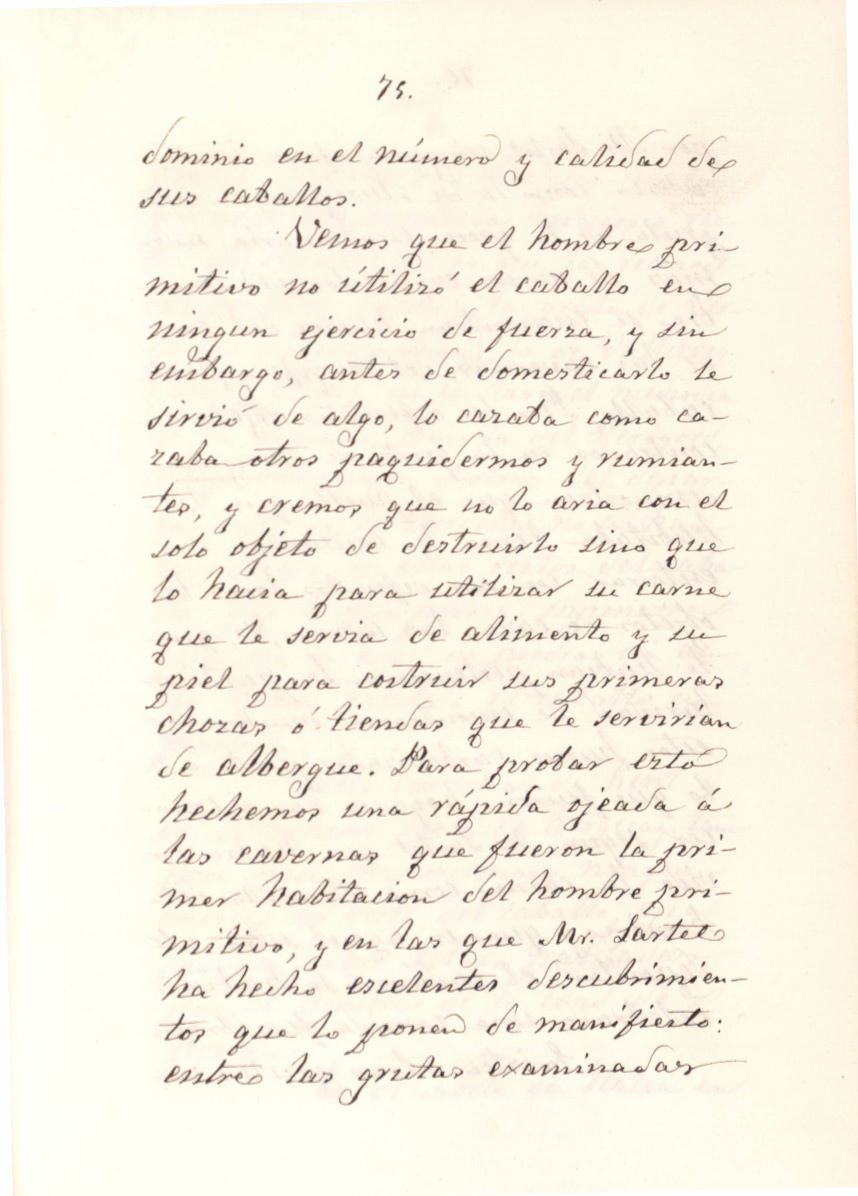 75.
dominio en el número y calidad de
sus caballos.
Vemos que el hombre pri-
mitivo no útilizó el caballo en
ningun ejercicio de fuerza, y sin
embargo, antes de domesticarlo le
sirvió de algo, lo cazaba como ca-
zaba otros paquidermos y rumian-
tes, y cremos que no lo aria con el
solo objeto de destruirlo sino que
lo hacia para utilizar su carne
que le servia de alimento y su
piel para costruir sus primeras
chozas ó tiendas que le servirían
de albergue. Para probar esto
hechemos una rápida ojeada á
las cavernas que fueron la pri-
mer habitacion del hombre pri-
mitivo, y en las que Mr. Lartet
ha hecho escelentes descubrimien-
tos que lo ponen de manifiesto:
entre las grutas examinadas